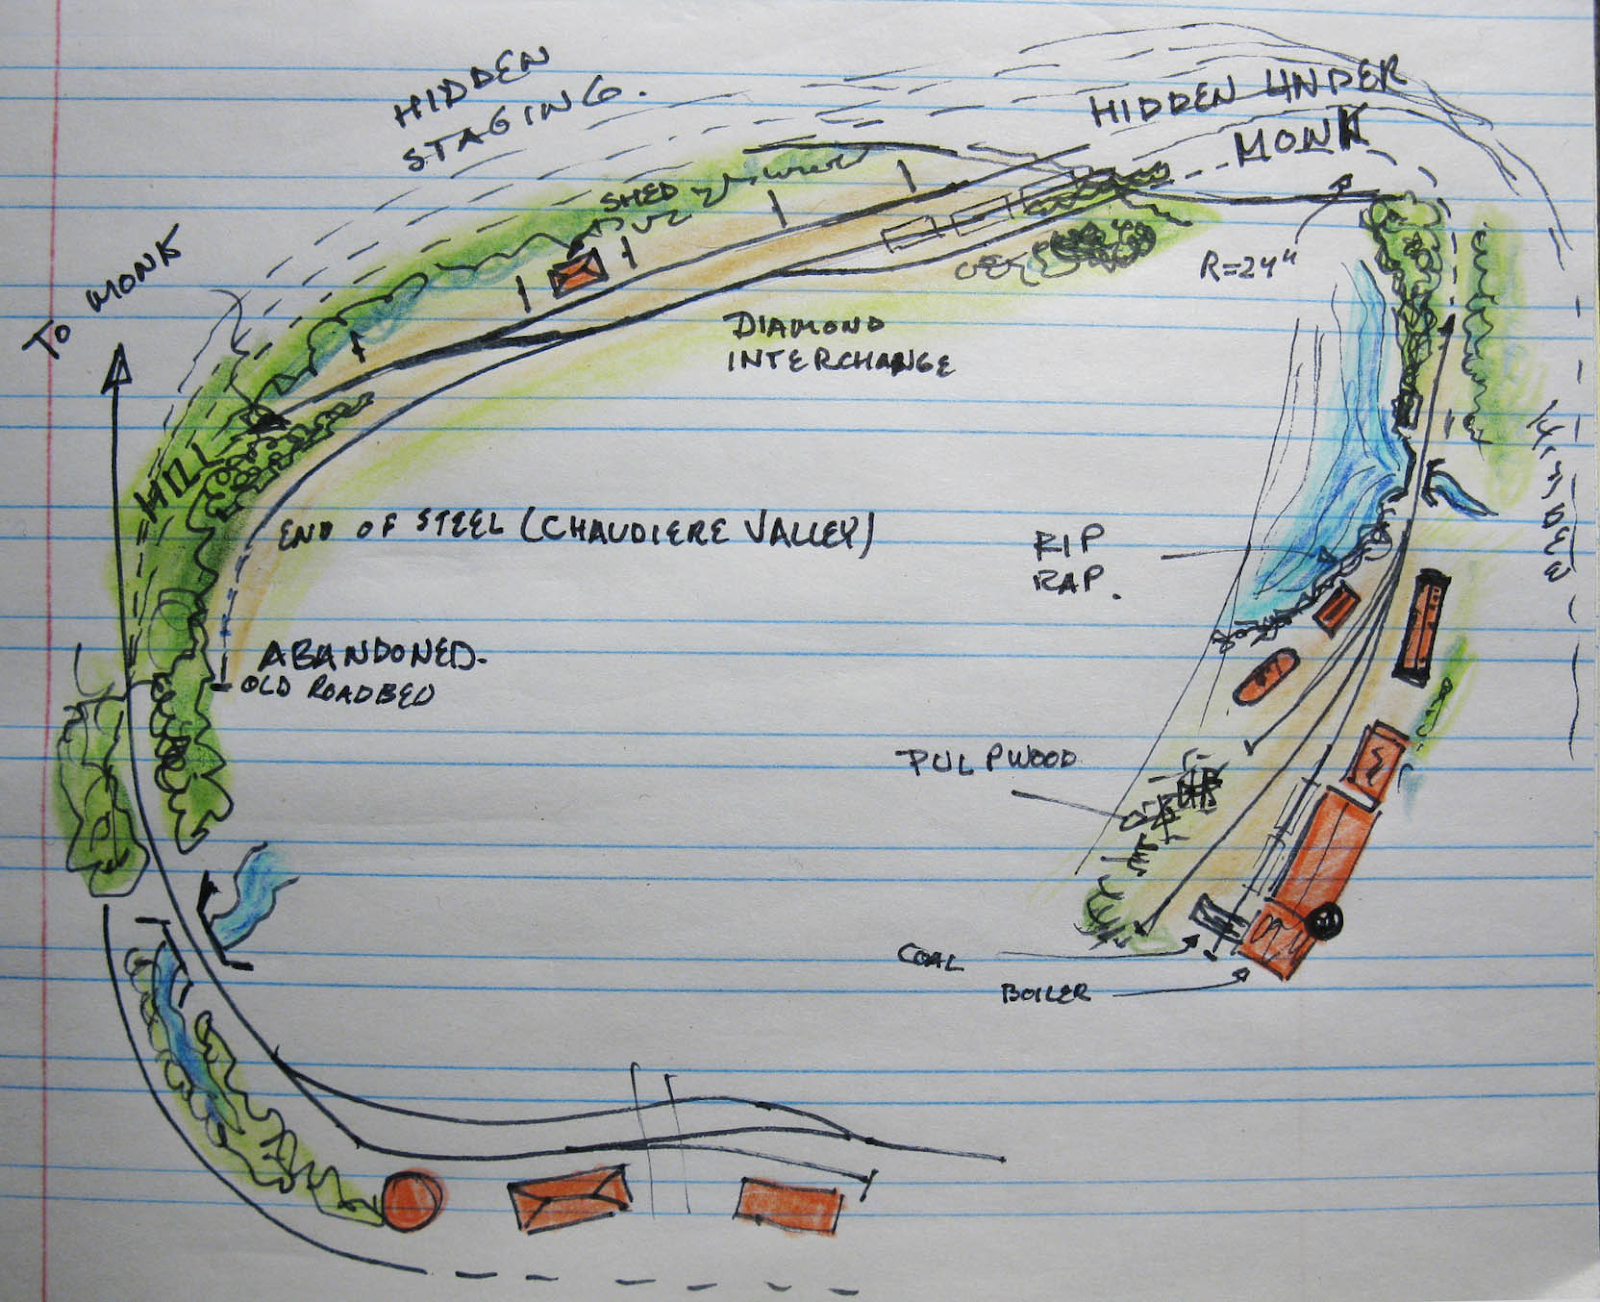 HIDDEN
STAGING.
HIDDEN UNDER
MONK
TO MONK
SHED
R=24"
DIAMOND
INTERCHANGE
HILL
END OF STEEL (CHAUDIERE VALLEY)
RIP
RAP.
ABANDONED.
OLD ROADBED
PULPWOOD
COAL
BOILER